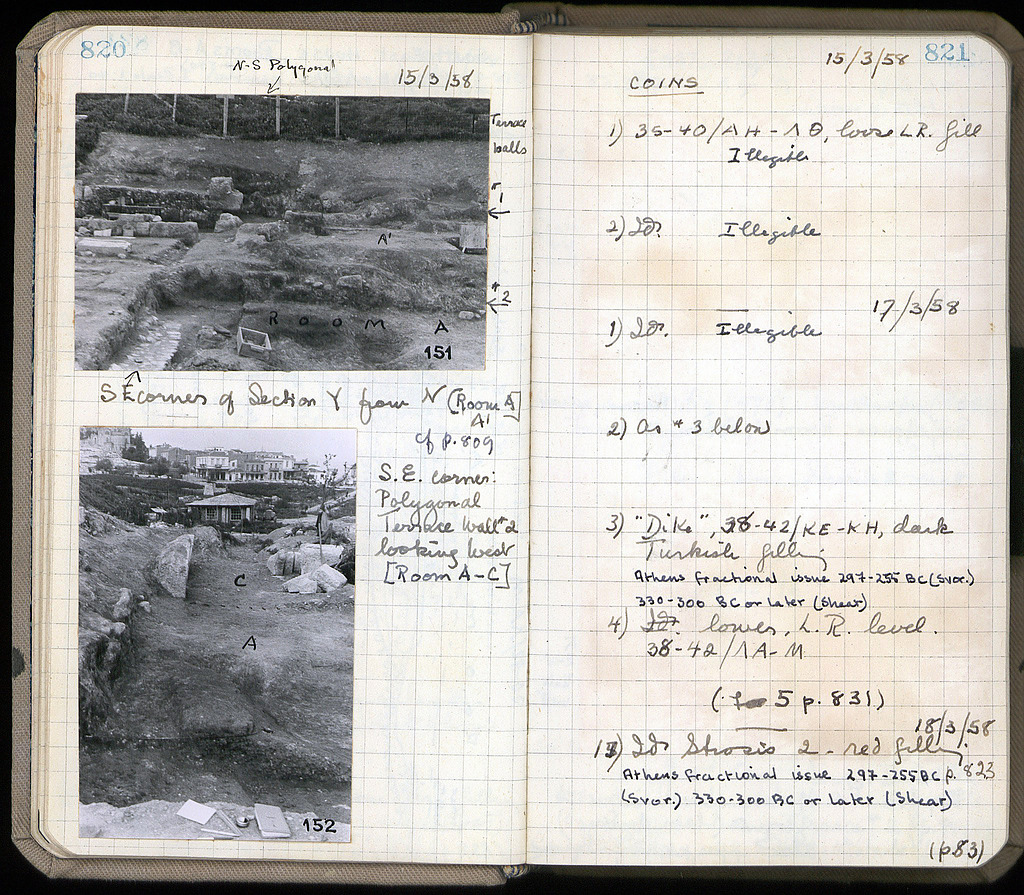 820
N-S Polygonal
15/3/58
Terrace
Walls
#1
A'
#2
ROOM A
151
SE corner of Section Y from N [Room A]
A'
cf p. 809
S.E. corner:
Polygonal
Terrace Wall #2
looking West
[Room A-C]
C
A
152
15/3/58 821
COINS
1) 35-40/ΛH-ΛΘ, loose L.R. fill
Illegible
2) Id. Illegible
17/3/58
1) Id. Illegible
2) As #3 below
3) "Dike", 38-42/KE-KH, dark
Turkish filling
Athens fractional issue 297-255 BC (Svor.)
330-300 BC or later (Shear)
4) Id. lower, L.R. level.
38-42/ΛA-M
5 p. 831)
18/3/58
Id. Strosis 2 - red filling
Athens fractional issue 297-255 BC p. 823
(Svor.) 330-300 BC or later (Shear)
(p.83)